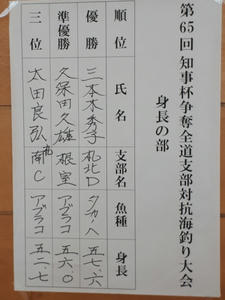 第65回 知事杯争奪全道支部対抗海釣り大会
身長の部
順位 氏名 支部名 魚種 身長
優勝 三本木秀孝 札北D タカノハ 五七.六
準優勝 久保田久雄 根室 アブラコ 五六.〇
三位 太田良弘 札南C アブラコ 五二.七